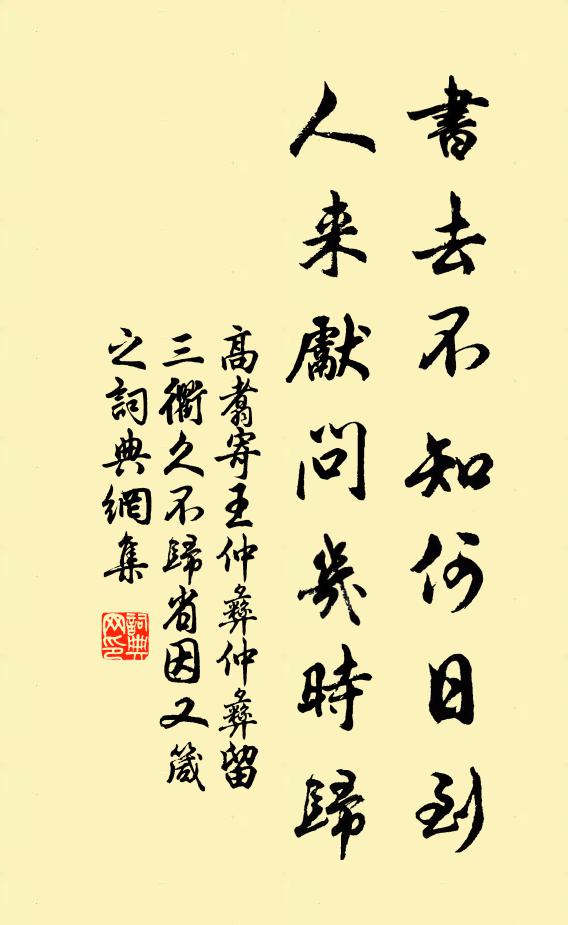 書去不知何日到
人来獻問幾時歸
高翥寄王仲彝仲彝留
三衢久不歸省因又箴
之詞典網集
詞典网印